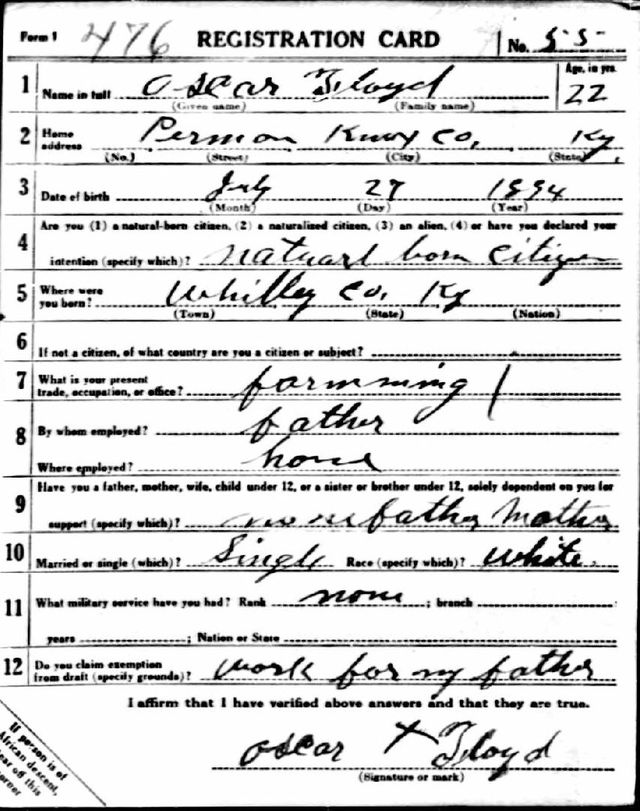 Form 1 476 REGISTRATION CARD No. 55
1 Name in full Oscar Floyd Age, in yrs. 22
(Given name) (Family name)
2 Home address Permon Knox Co, Ky,
(No.) (Street) (City) (State)
3 Date of birth July 27 1894
(Month) (Day) (Year)
4 Are you (1) a natural-born citizen, (2) a naturalized citizen, (3) an alien, (4) or have you declared your
intention (specify which)? natuarl born citizen
5 Where were you born? Whitley Co, Ky
(Town) (State) (Nation)
6 If not a citizen, of what country are you a citizen or subject?
7 What is your present trade, occupation, or office? farmming
8 By whom employed? father
Where employed? home
9 Have you a father, mother, wife, child under 12, or a sister or brother under 12, solely dependent on you for
support (specify which)? father Mother
10 Married or single (which)? Single Race (specify which)? white.
11 What military service have you had? Rank none ; branch
years ; Nation or State
12 Do you claim exemption from draft (specify grounds)? work for my father
I affirm that I have verified above answers and that they are true.
Oscar X Floyd
(Signature or mark)
If person is of
African descent,
tear off this
corner